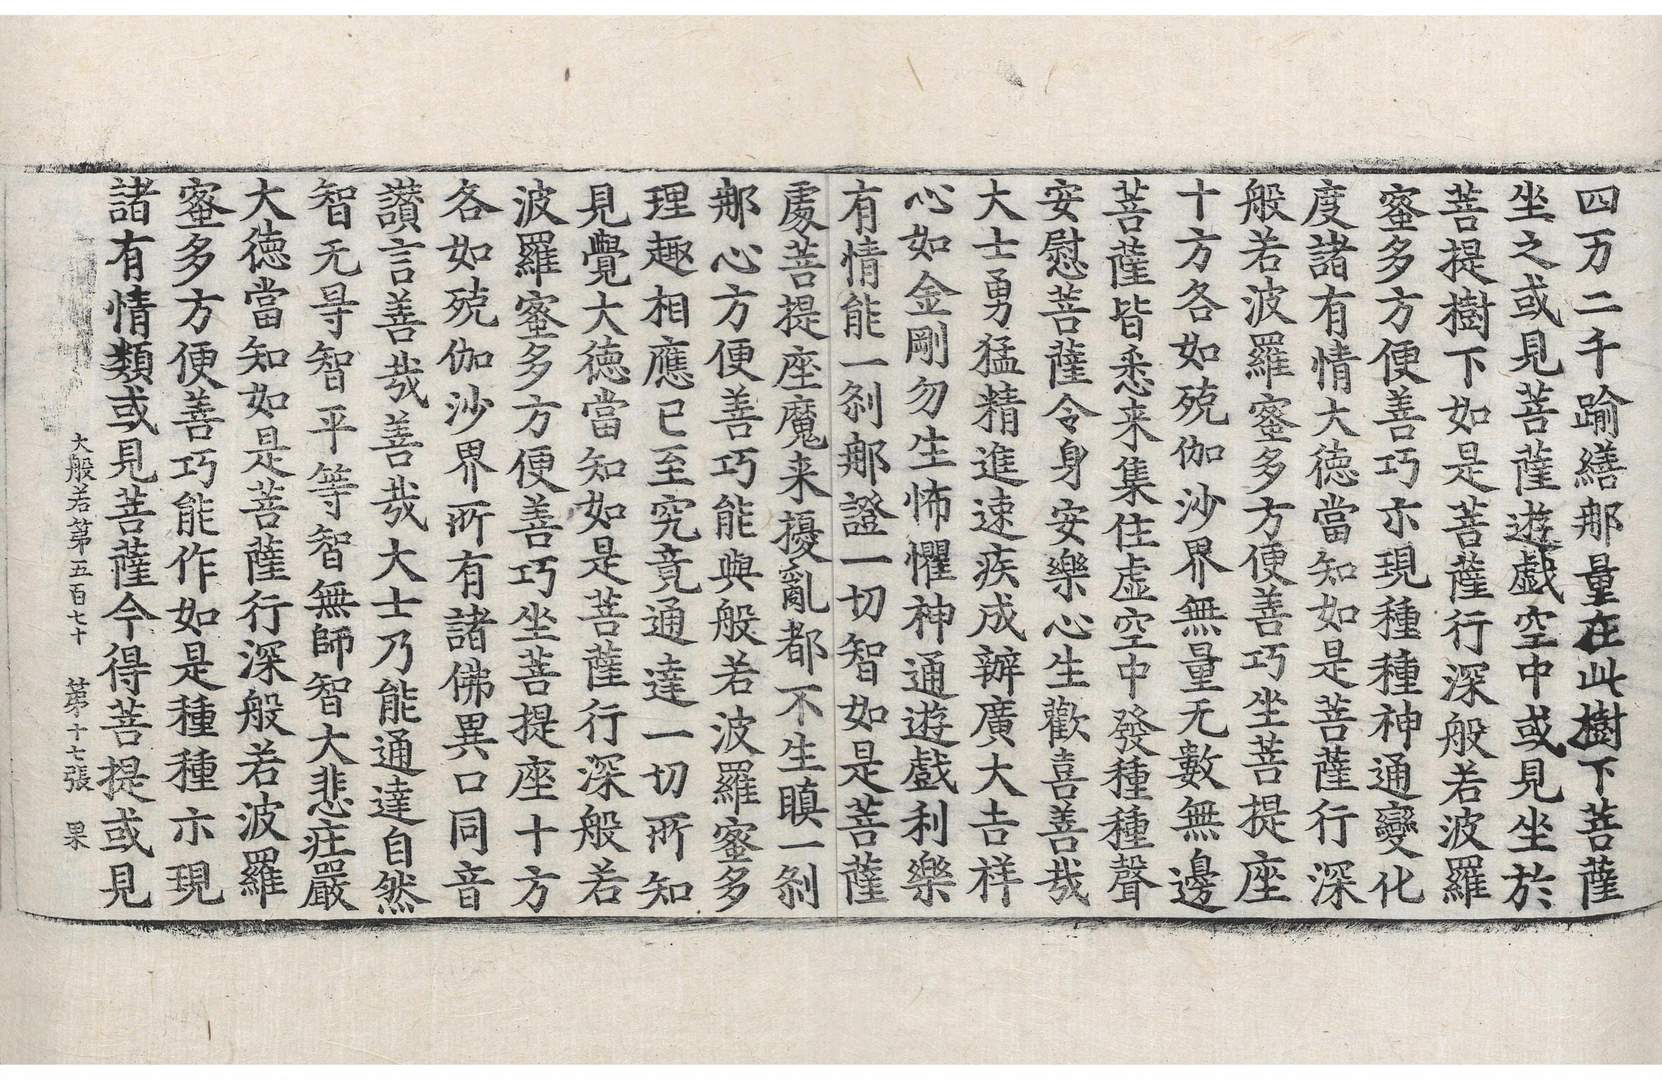 四万二千踰繕那量在此樹下菩薩
坐之或見菩薩遊戱空中或見坐於
菩提樹下如是菩薩行深般若波羅
蜜多方便善巧示現種種神通變化
度諸有情大德當知如是菩薩行深
般若波羅蜜多方便善巧坐菩提座
十方各如殑伽沙界無量无數無邊
菩薩皆悉来集住虛空中發種種聲
安慰菩薩令身安樂心生歡喜善哉
大士勇猛精進速疾成辦廣大吉祥
心如金剛勿生怖懼神通遊戲利樂
有情能一刹那證一切智如是菩薩
處菩提座魔来擾亂都不生瞋一刹
那心方便善巧能與般若波羅蜜多
理趣相應已至究竟通達一切所知
見覺大德當知如是菩薩行深般若
波羅蜜多方便善巧坐菩提座十方
各如殑伽沙界所有諸佛異口同音
讚言善哉善哉大士乃能通達自然
智无㝵智平等智無師智大悲莊嚴
大德當知如是菩薩行深般若波羅
蜜多方便善巧能作如是種種示現
諸有情類或見菩薩今得菩提或見
大般若第五百七十 第十七張 果